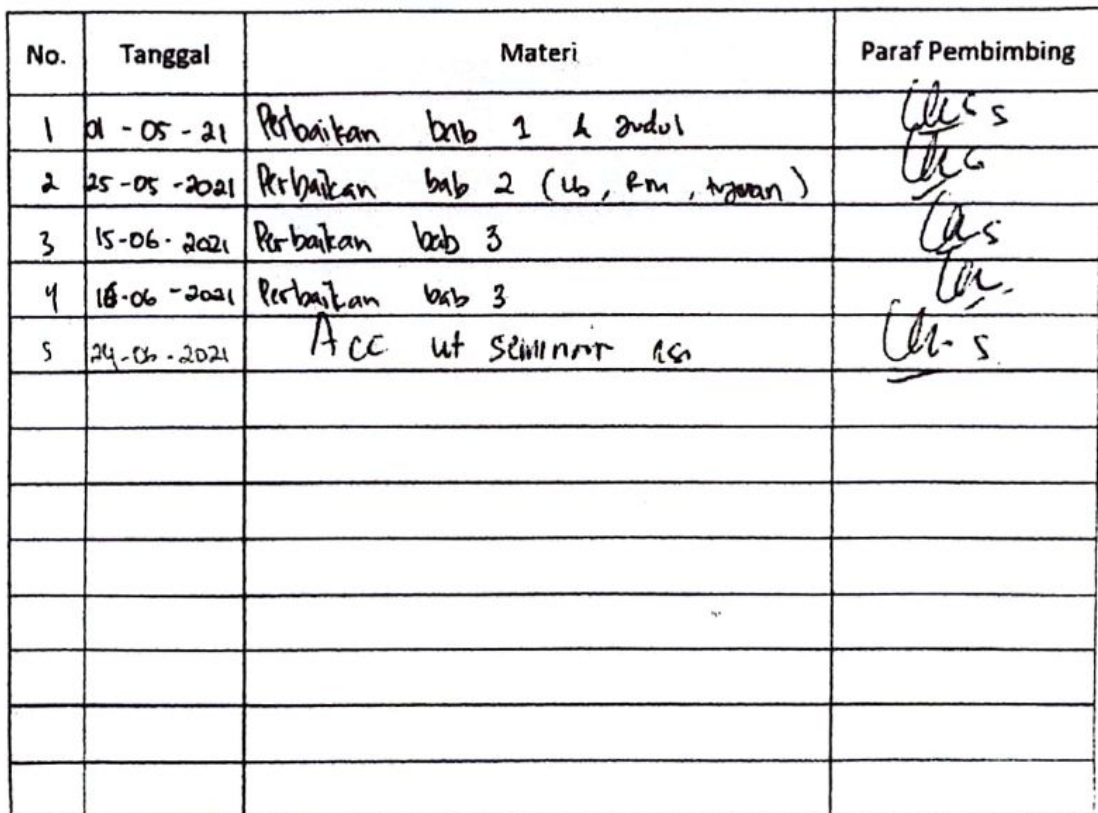 No. Tanggal Materi Paraf Pembimbing
1 01 - 05 - 21 Perbaikan bab 1 & Judul
2 25 - 05 - 2021 Perbaikan bab 2 (Lb, Rm, tujuan)
3 15 - 06 - 2021 Perbaikan bab 3
4 16 - 06 - 2021 Perbaikan bab 3
5 24 - 06 - 2021 Acc ut seminar